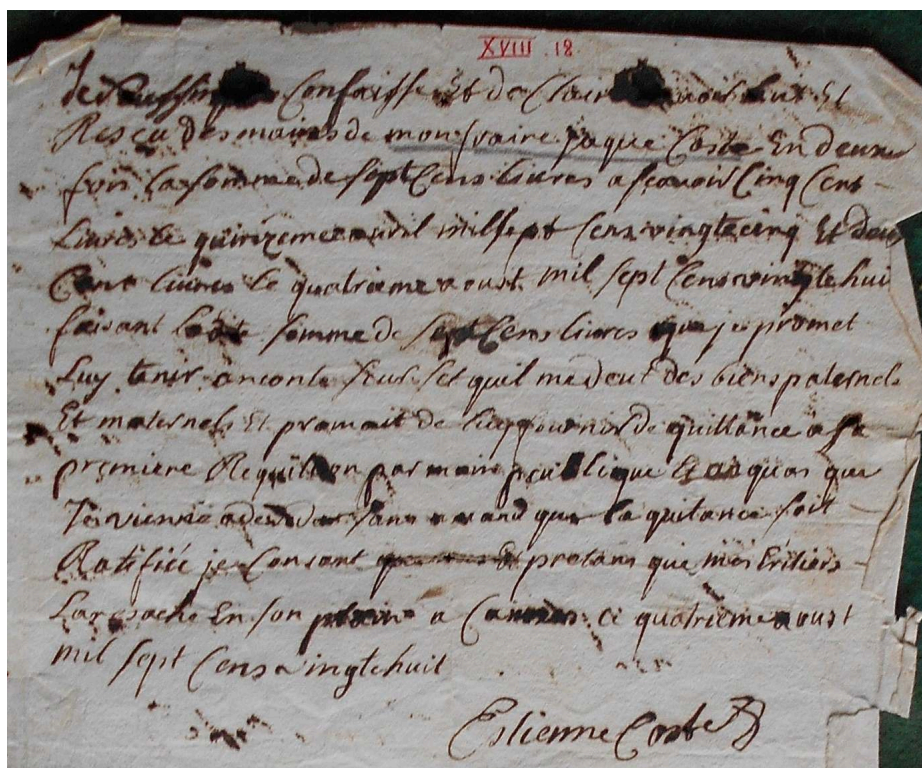 XVIII 18
Je Soussin Confaisse Et de Clair avoir Eut Et
Resçu des mains de mon fraire jaque Coste En deux
fois la somme de sept Cens livres a sçavoir Cinq Cens
Livres le quinzeme avril mil sept Cens vingte cinq Et deux
Cens livres le quatrieme aoust mil sept Cens vingte hui
faisant somme de sept Cens livres que je promet
Luy tenir a conte seur set quil me deut des biens paternels
Et maternels Et promait de luy fournir de quittance a sa
premiere Requision par main publique Et au quas que
Je vienne a sans avand que la quitance soit
Ratifiée je Consant Et pretans que mes Eritiers
La En son a Cannes ce quatrieme aoust
mil sept Cens vingte huit
Estienne Coste